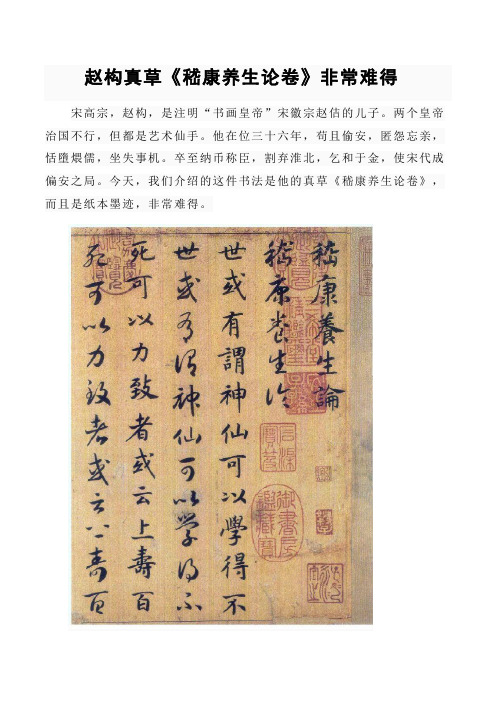 赵构真草《嵇康养生论卷》非常难得
宋高宗，赵构，是注明“书画皇帝”宋徽宗赵佶的儿子。两个皇帝
治国不行，但都是艺术仙手。他在位三十六年，苟且偷安，匿怨忘亲，
恬堕煨儒，坐失事机。卒至纳币称臣，割弃淮北，乞和于金，使宋代成
偏安之局。今天，我们介绍的这件书法是他的真草《嵇康养生论卷》，
而且是纸本墨迹，非常难得。
嵇康養生論
嵇康养生论
世或有謂神仙可以學得不
世或有谓神仙可以学得不
死可以力致者或云上壽百
死可以力致者或云上寿百
御書房鑑藏寶
石渠寶笈